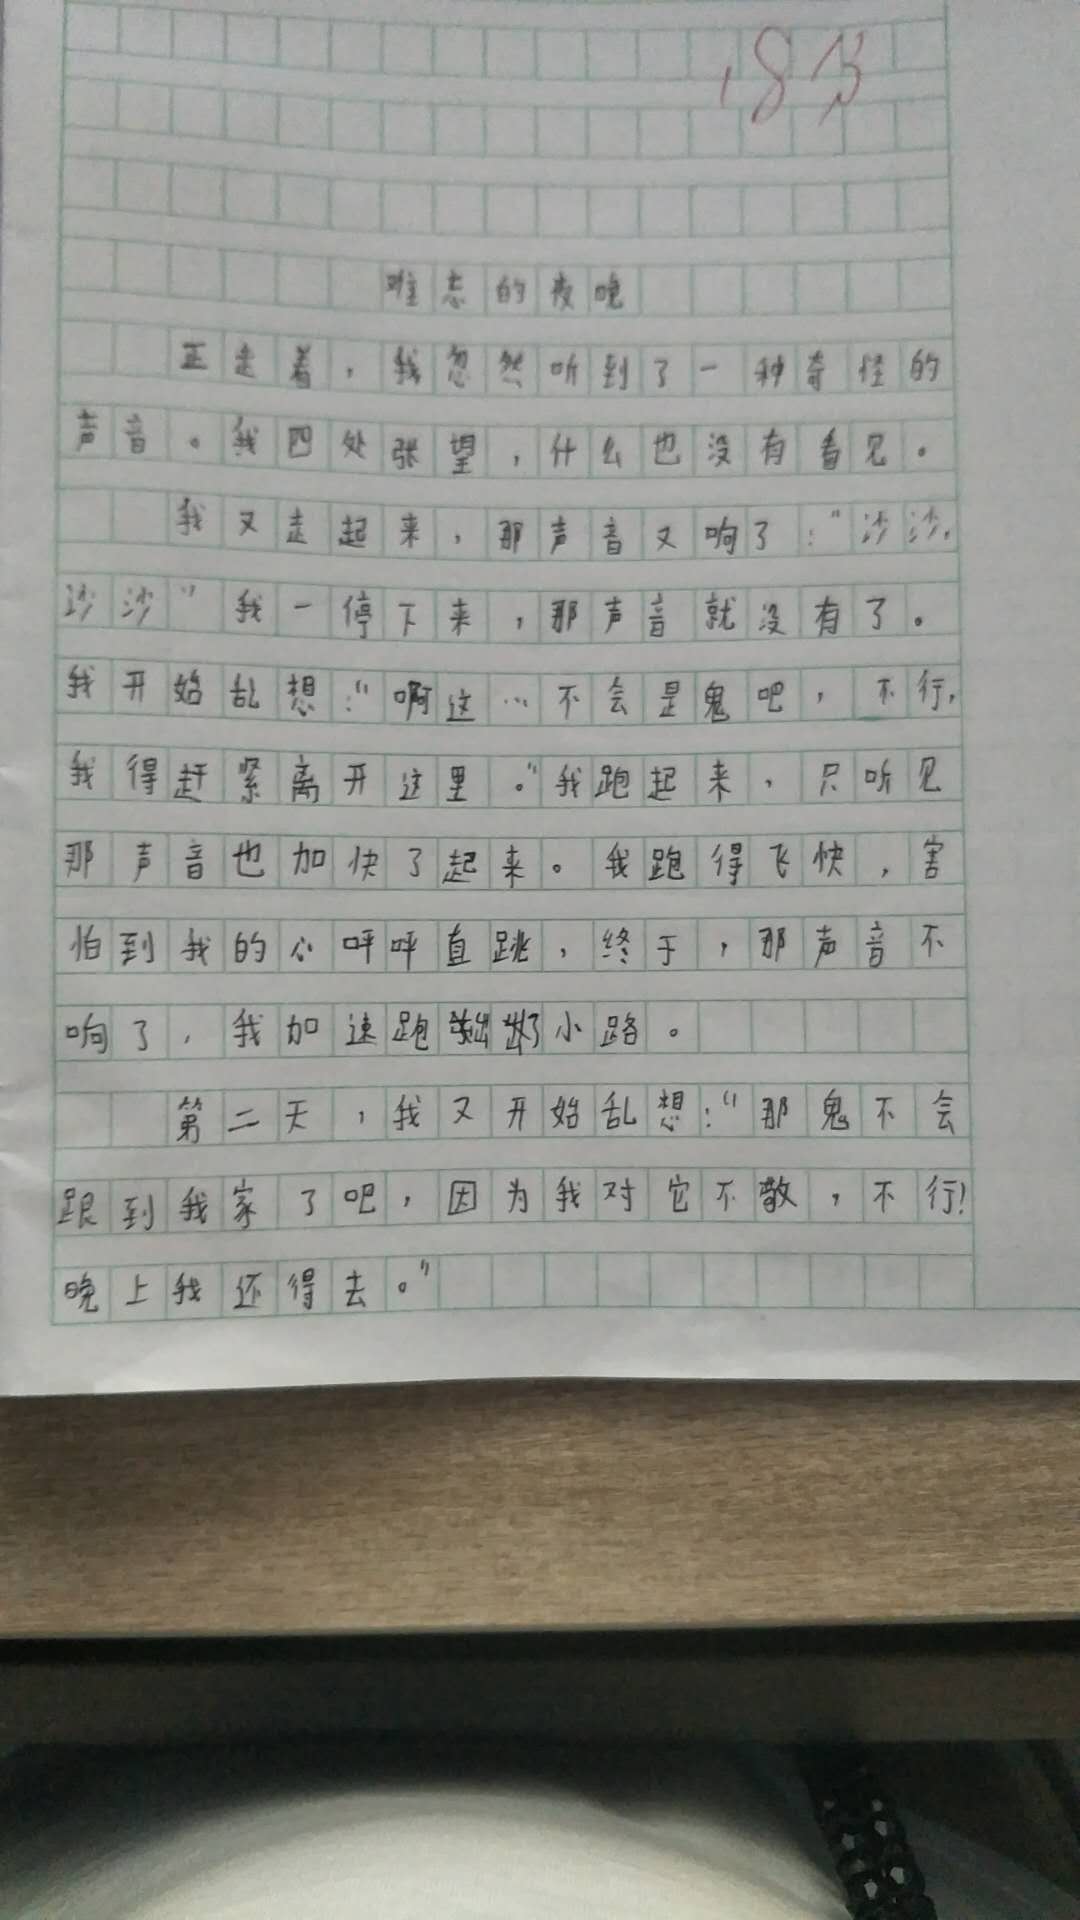 18分
难忘的夜晚
正走着，我忽然听到了一种奇怪的
声音。我四处张望，什么也没有看见。
我又走起来，那声音又响了：“沙沙，
沙沙”我一停下来，那声音就没有了。
我开始乱想：“啊这…不会是鬼吧，不行，
我得赶紧离开这里。”我跑起来，只听见
那声音也加快了起来。我跑得飞快，害
怕到我的心呯呯直跳，终于，那声音不
响了，我加速跑出了小路。
第二天，我又开始乱想：“那鬼不会
跟到我家了吧，因为我对它不敬，不行！
晚上我还得去。”